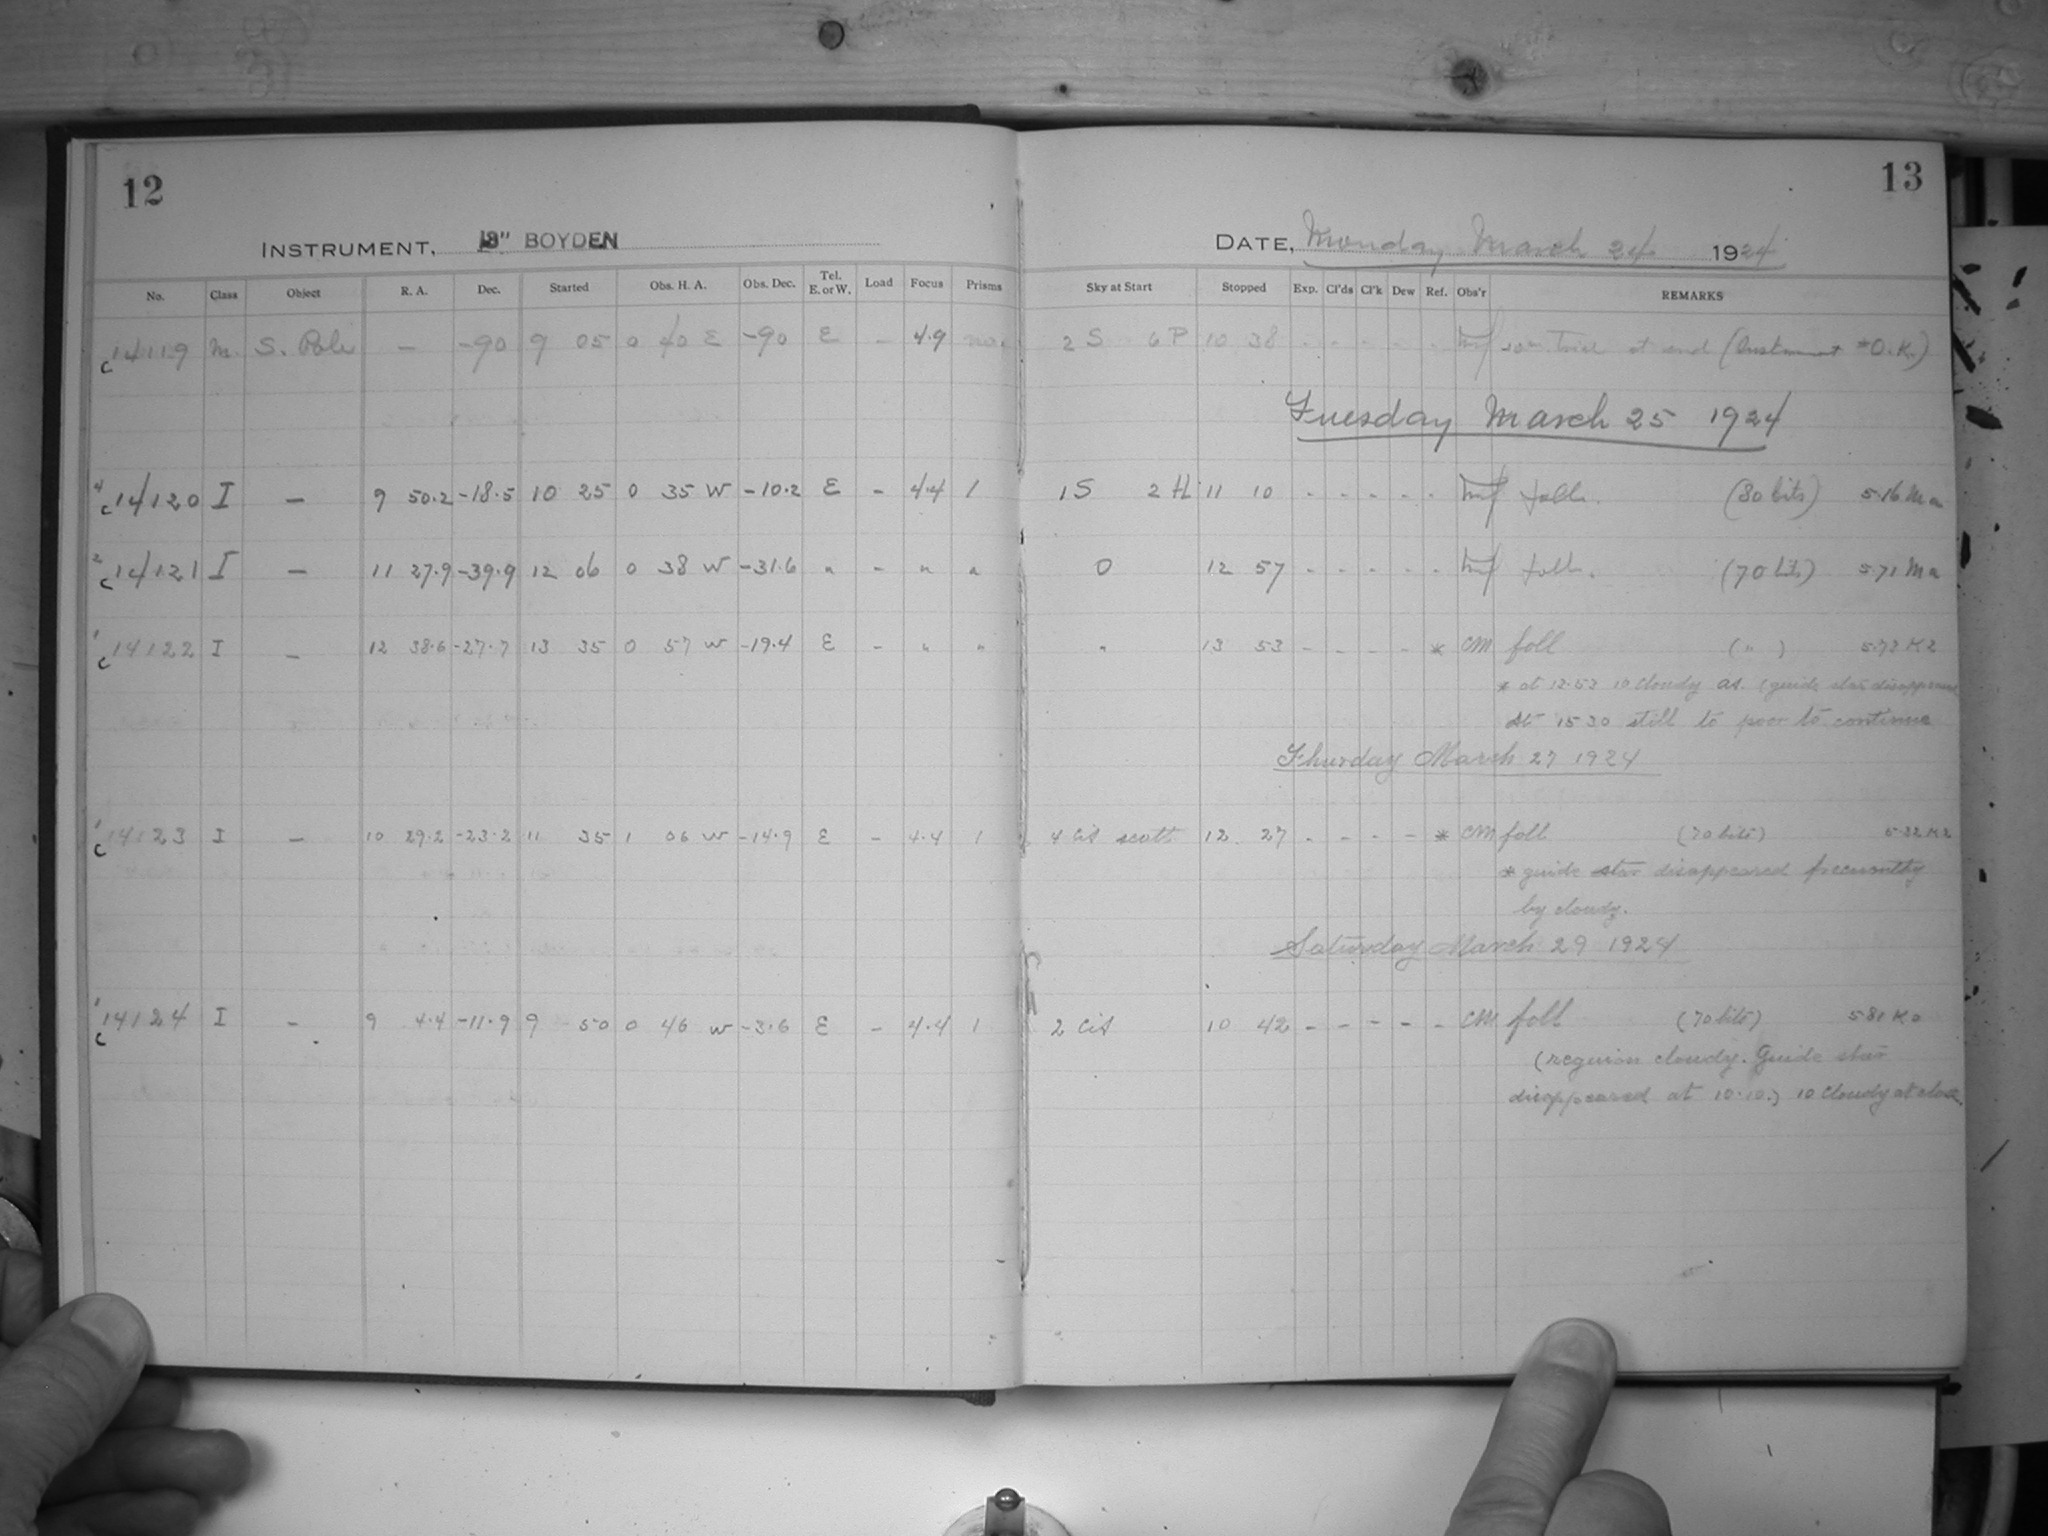 12
INSTRUMENT, 13" BOYDEN
No. Class Object R. A. Dec. Started Obs. H. A. Obs. Dec. Tel. E. or W. Load Focus Prisms
c 14119 M. S. Pole — -90 9 05 0 40 E -90 E - 4.9
4 c 14120 I — 9 50.2 -18.5 10 25 0 35 W -10.2 E - 4.4 1
2 c 14121 I — 11 27.9 -39.9 12 06 0 38 W -31.6 " - " "
1 c 14122 I — 12 38.6 -27.7 13 35 0 57 W -19.4 E - " "
1 c 14123 I — 10 29.2 -23.2 11 35 1 06 W -14.9 E - 4.4 1
1 c 14124 I — 9 4.4 -11.9 9 50 0 46 W -3.6 E - 4.4 1
13
DATE, Monday March 24 1924
Sky at Start Stopped Exp. Cl'ds Cl'k Dew Ref. Obs'r REMARKS
2 S 6 P 10 38 - - - - - at end (Instrument O.K.)
Tuesday March 25 1924
1 S 2 H 11 10 - - - - - foll. (80 bits) 5.16 Ma
0 12 57 - - - - - foll. (70 bits) 5.71 Ma
" 13 53 - - - - * CM foll (") 5.72 K2
* at 10 cloudy as. (guide star
At 15 30 still to poor to continue
Thursday March 27 1924
4 Cis scott 12 27 - - - - * CM foll (70 bits) K2
* guide star disappeared
by cloudy.
Saturday March 29 1924
2 Cis 10 42 - - - - - CM foll (70 bits) 5.81 K0
(reguion cloudy. Guide star
disappeared at 10.10.) 10 Cloudy at close.